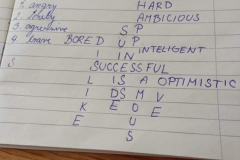 1. angry HARD
2. AMBICIOUS
3. S P
4 brave BORED U P
I I N INTELIGENT
S SUCCESSFUL
L I S A OPTIMISTIC
I D S M V
K E O E E
E U
S